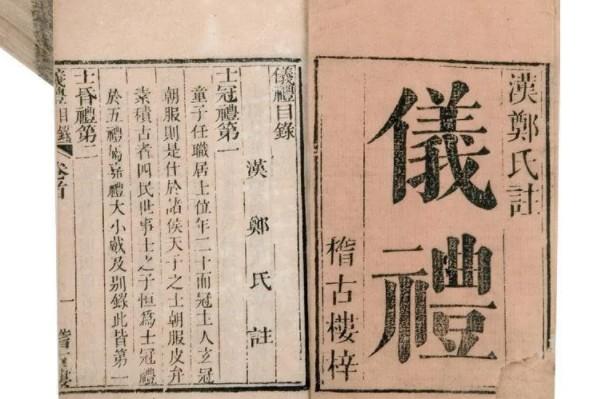 漢鄭氏註
儀禮
稽古樓梓
儀禮目錄
漢鄭氏註
士冠禮第一
童子任職居士位年二十而冠主人玄冠
朝服則是仕於諸侯天子之士朝服皮弁
素積古者四民世事士之子恒爲士冠禮
於五禮屬嘉禮大小戴及別錄此皆第一
士昏禮第二
儀禮目錄 卷首 一 稽古樓